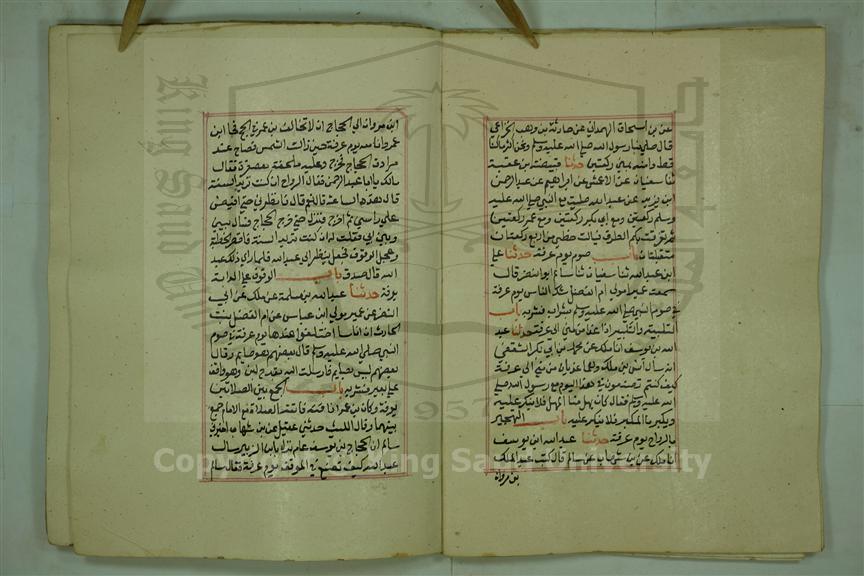 عن بن اسحاق الهمداني عن حارثة بن وهب الخزاعي
قال صلي بنا رسول الله صلي الله عليه وسلم ونحن اكثر ما كنا
قط وامنه بمني ركعتين حدثنا قبيصة بن عقبة
ثنا سفيان عن الاعمش عن ابراهيم عن عبد الرحمن
ابن يزيد عن عبد الله صليت مع النبي صلي الله عليه
وسلم ركعتين ومع ابي بكر ركعتين ومع عمر ركعتين
ثم تفرقت بكم الطرق فياليت حظي من اربع ركعتان
متقبلتان باب صوم يوم عرفة حدثنا علي
ابن عبد الله ثنا سفيان ثنا سالم ابو النضر قال
سمعت عمير مولي ام الفضل شك الناس يوم عرفة
في صوم النبي صلي الله عليه وسلم بشراب فشربه باب
التلبية والتكبير اذا غدا من مني الي عرفة حدثنا عبد
الله بن يوسف انا ملك عن محمد بن ابي بكر الثقفي
انه سأل انس بن ملك وهما غاديان من مني الي عرفة
كيف كنتم تصنعون في هذا اليوم مع رسول الله صلي
الله عليه وسلم فقال كان يهل منا المهل فلا ينكر عليه
ويكبر منا المكبر فلا ينكر عليه باب التهجير
بالرواح يوم عرفة حدثنا عبد الله ابن يوسف
انا ملك عن بن شهاب عن سالم قال كتب عبد الملك
بن مروان
ابن مروان الي الحجاج ان لا تخالف بن عمر في الحج فجا ابن
عمر وانا معه يوم عرفة حين زالت الشمس فصاح عند
سرادق الحجاج فخرج وعليه ملحفة معصفرة فقال
مالك يا ابا عبد الرحمن فقال الرواح ان كنت تريد السنة
قال هذه الساعة قال نعم قال فانظرني حتي افيض
علي راسي ثم اخرج فنزل حتي خرج الحجاج فسار بيني
وبين ابي فقلت ان كنت تريد السنة فاقصر الخطبة
وعجل الوقوف فجعل ينظر الي عبد الله فلما راي ذلك عبد
الله قال صدق باب الوقوف علي الدابة
بعرفة حدثنا عبد الله بن مسلمة عن ملك عن ابي
النضر عن عمير مولي ابن عباس عن ام الفضل بنت
الحارث ان اناسا اختلفوا عندها يوم عرفة في صوم
النبي صلي الله عليه وسلم قال بعضهم هو صايم وقال
بعضهم ليس بصايم فارسلت اليه بقدح لبن وهو واقف
علي بعيره فشربه باب الجمع بين الصلاتين
بعرفة وكان بن عمر اذا فاتته الصلاة مع الامام جمع
بينهما وقال الليث حدثني عقيل عن بن شهاب اخبرني
سالم ان الحجاج بن يوسف عام نزل بابن الزبير سال
عبد الله كيف تصنع في الموقف يوم عرفة فقال سالم
King Saud University
1957
Copyright © King Saud University